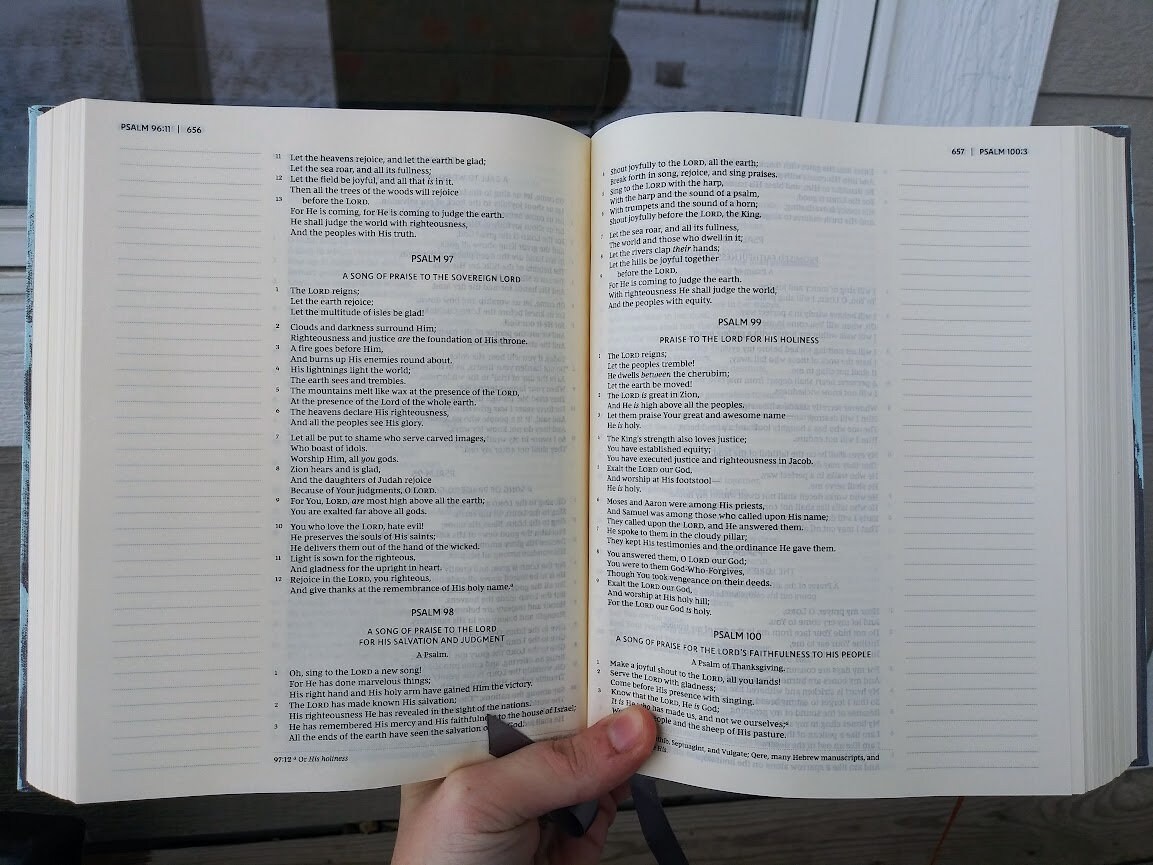 PSALM 96:11 | 656
11 Let the heavens rejoice, and let the earth be glad;
Let the sea roar, and all its fullness;
12 Let the field be joyful, and all that is in it.
Then all the trees of the woods will rejoice
13 before the LORD.
For He is coming, for He is coming to judge the earth.
He shall judge the world with righteousness,
And the peoples with His truth.
PSALM 97
A SONG OF PRAISE TO THE SOVEREIGN LORD
1 The LORD reigns;
Let the earth rejoice;
Let the multitude of isles be glad!
2 Clouds and darkness surround Him;
Righteousness and justice are the foundation of His throne.
3 A fire goes before Him,
And burns up His enemies round about.
4 His lightnings light the world;
The earth sees and trembles.
5 The mountains melt like wax at the presence of the LORD,
At the presence of the Lord of the whole earth.
6 The heavens declare His righteousness,
And all the peoples see His glory.
7 Let all be put to shame who serve carved images,
Who boast of idols.
Worship Him, all you gods.
8 Zion hears and is glad,
And the daughters of Judah rejoice
Because of Your judgments, O LORD.
9 For You, LORD, are most high above all the earth;
You are exalted far above all gods.
10 You who love the LORD, hate evil!
He preserves the souls of His saints;
He delivers them out of the hand of the wicked.
11 Light is sown for the righteous,
And gladness for the upright in heart.
12 Rejoice in the LORD, you righteous,
And give thanks at the remembrance of His holy name.a
PSALM 98
A SONG OF PRAISE TO THE LORD
FOR HIS SALVATION AND JUDGMENT
A Psalm.
1 Oh, sing to the LORD a new song!
For He has done marvelous things;
His right hand and His holy arm have gained Him the victory.
2 The LORD has made known His salvation;
His righteousness He has revealed in the sight of the nations.
3 He has remembered His mercy and His faithfulness to the house of Israel;
All the ends of the earth have seen the salvation of God.
97:12 a Or His holiness
657 | PSALM 100:3
4 Shout joyfully to the LORD, all the earth;
Break forth in song, rejoice, and sing praises.
5 Sing to the LORD with the harp,
With the harp and the sound of a psalm,
6 With trumpets and the sound of a horn;
Shout joyfully before the LORD, the King.
7 Let the sea roar, and all its fullness,
The world and those who dwell in it;
8 Let the rivers clap their hands;
Let the hills be joyful together
9 before the LORD,
For He is coming to judge the earth.
With righteousness He shall judge the world,
And the peoples with equity.
PSALM 99
PRAISE TO THE LORD FOR HIS HOLINESS
1 The LORD reigns;
Let the peoples tremble!
He dwells between the cherubim;
Let the earth be moved!
2 The LORD is great in Zion,
And He is high above all the peoples.
3 Let them praise Your great and awesome name—
He is holy.
4 The King's strength also loves justice;
You have established equity;
You have executed justice and righteousness in Jacob.
5 Exalt the LORD our God,
And worship at His footstool—
He is holy.
6 Moses and Aaron were among His priests,
And Samuel was among those who called upon His name;
They called upon the LORD, and He answered them.
7 He spoke to them in the cloudy pillar;
They kept His testimonies and the ordinance He gave them.
8 You answered them, O LORD our God;
You were to them God-Who-Forgives,
Though You took vengeance on their deeds.
9 Exalt the LORD our God,
And worship at His holy hill;
For the LORD our God is holy.
PSALM 100
A SONG OF PRAISE FOR THE LORD'S FAITHFULNESS TO HIS PEOPLE
A Psalm of Thanksgiving.
1 Make a joyful shout to the LORD, all you lands!
2 Serve the LORD with gladness;
Come before His presence with singing.
3 Know that the LORD, He is God;
It is He who has made us, and not we ourselves;a
people and the sheep of His pasture.
Septuagint, and Vulgate; Qere, many Hebrew manuscripts, and